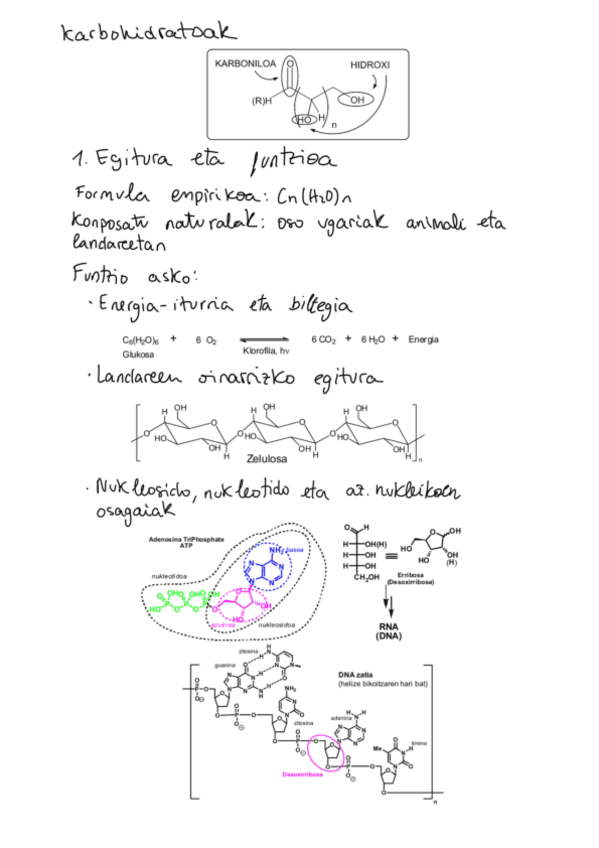 Karbohidratoak
KARBONILOA O HIDROXI
(R)H OH
HO H n
1. Egitura eta funtzioa
Formula enpirikoa: Cn(H2O)n
Konposatu naturalak: oso ugariak animali eta
landareetan
Funtzio asko:
· Energia-iturria eta biltegia
C6(H2O)6 + 6 O2 6 CO2 + 6 H2O + Energia
Glukosa Klorofila, hν
· Landareen oinarrizko egitura
Zelulosa
· Nukleosido, nukleotido eta az. nukleikoen
osagaiak
Adenosina TriPhosphate
ATP
NH2 basea
nukleotidoa
azukrea nukleosidoa
O H
H OH(H)
H OH
H OH
CH2OH
Erribosa
(Desoxirribosa)
RNA
(DNA)
zitosina
guanina
DNA zatia
(helize bikoitzaren hari bat)
zitosina
adenina
timina
Desoxirribosa
n